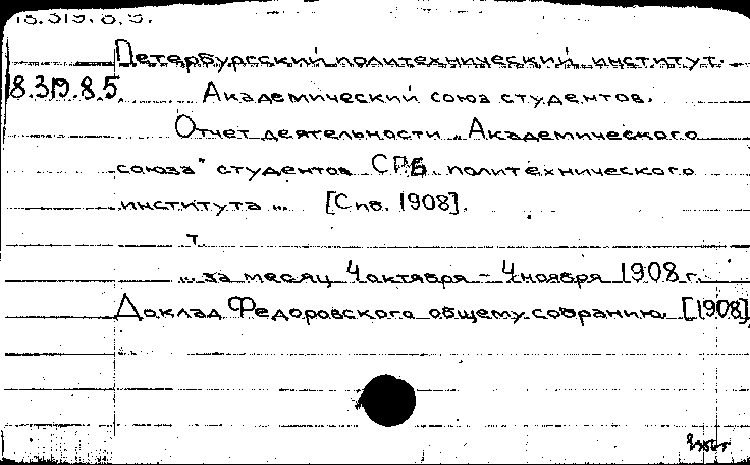 18.319.8.5.
Петербургский политехнический институт.
18.319.8.5. Академический союз студентов.
Отчет деятельности „Академического
союза" студентов СПБ политехнического
института ... [Спб. 1908].
т.
... за месяц 4 октября – 4 ноября 1908 г.
Доклад Федоровского общему собранию. [1908]